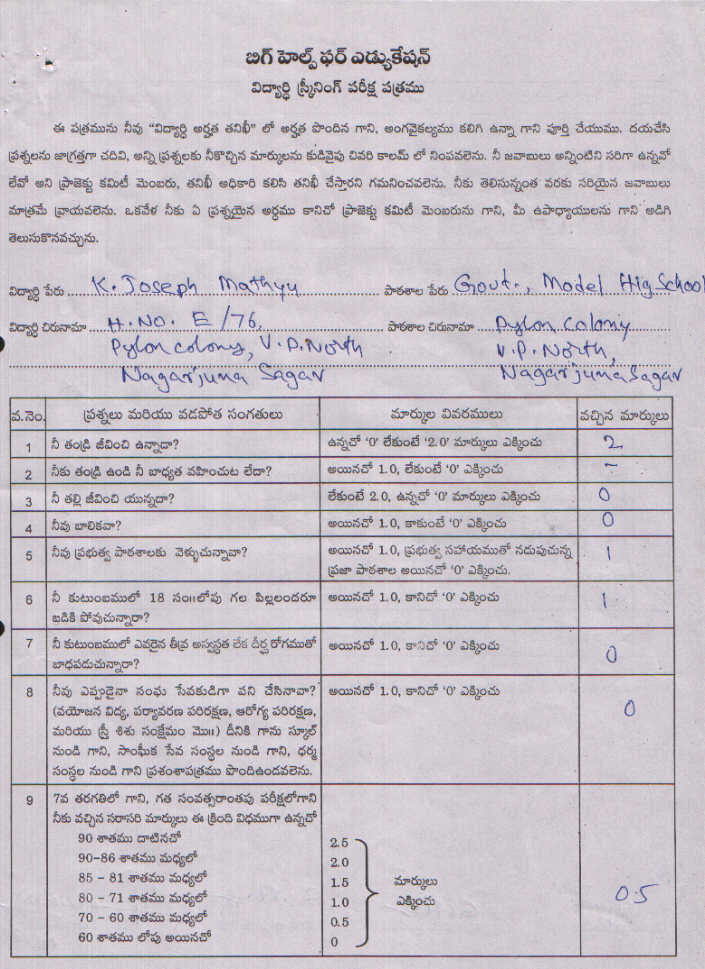 బిగ్ హెల్ప్ ఫర్ ఎడ్యుకేషన్
విద్యార్థి స్క్రీనింగ్ పరీక్ష పత్రము
ఈ పత్రమును నీవు "విద్యార్థి అర్హత తనిఖీ" లో అర్హత పొందిన గాని, అంగవైకల్యము కలిగి ఉన్నా గాని పూర్తి చేయుము. దయచేసి
ప్రశ్నలను జాగ్రత్తగా చదివి, అన్ని ప్రశ్నలకు నీకొచ్చిన మార్కులను కుడివైపు చివరి కాలమ్ లో నింపవలెను. నీ జవాబులు అన్నింటిని సరిగా ఉన్నవో
లేవో అని ప్రాజెక్టు కమిటీ మెంబరు, తనిఖీ అధికారి కలిసి తనిఖీ చేస్తారని గమనించవలెను. నీకు తెలిసున్నంత వరకు సరియైన జవాబులు
మాత్రమే వ్రాయవలెను. ఒకవేళ నీకు ఏ ప్రశ్నయైన అర్థము కానిచో ప్రాజెక్టు కమిటీ మెంబరును గాని, మీ ఉపాధ్యాయులను గాని అడిగి
తెలుసుకొనవచ్చును.
విద్యార్థి పేరు K. Joseph Mathyu పాఠశాల పేరు Govt., Model Hig School
విద్యార్థి చిరునామా H.NO. E/76, పాఠశాల చిరునామా Pylon colony
Pylon colony, V.P. North V.P. North,
Nagarjuna Sagar Nagarjuna Sagar
వ.నెం. ప్రశ్నలు మరియు వడపోత సంగతులు మార్కుల వివరములు వచ్చిన మార్కులు
1 నీ తండ్రి జీవించి ఉన్నాడా? ఉన్నచో '0' లేకుంటే '2.0' మార్కులు ఎక్కించు 2
2 నీకు తండ్రి ఉండి నీ బాధ్యత వహించుట లేదా? అయినచో 1.0, లేకుంటే '0' ఎక్కించు -
3 నీ తల్లి జీవించి యున్నదా? లేకుంటే 2.0, ఉన్నచో '0' మార్కులు ఎక్కించు 0
4 నీవు బాలికవా? అయినచో 1.0, కాకుంటే '0' ఎక్కించు 0
5 నీవు ప్రభుత్వ పాఠశాలకు వెళ్ళుచున్నావా? అయినచో 1.0, ప్రభుత్వ సహాయముతో నడుపుచున్న 1
ప్రజా పాఠశాల అయినచో '0' ఎక్కించు.
6 నీ కుటుంబములో 18 సం॥లోపు గల పిల్లలందరూ అయినచో 1.0, కానిచో '0' ఎక్కించు 1
బడికి పోవుచున్నారా?
7 నీ కుటుంబములో ఎవరైన తీవ్ర అస్వస్థత లేక దీర్ఘ రోగముతో అయినచో 1.0, కానిచో '0' ఎక్కించు 0
బాధపడుచున్నారా?
8 నీవు ఎప్పుడైనా సంఘ సేవకుడిగా పని చేసినావా? అయినచో 1.0, కానిచో '0' ఎక్కించు 0
(వయోజన విద్య, పర్యావరణ పరిరక్షణ, ఆరోగ్య పరిరక్షణ,
మరియు స్త్రీ శిశు సంక్షేమం మొ॥) దీనికి గాను స్కూల్
నుండి గాని, సాంఘీక సేవ సంస్థల నుండి గాని, ధర్మ
సంస్థల నుండి గాని ప్రశంశాపత్రము పొందిఉండవలెను.
9 7వ తరగతిలో గాని, గత సంవత్సరాంతపు పరీక్షలోగాని
నీకు వచ్చిన సరాసరి మార్కులు ఈ క్రింది విధముగా ఉన్నచో
90 శాతము దాటినచో 2.5
90-86 శాతము మధ్యలో 2.0
85 - 81 శాతము మధ్యలో 1.5 మార్కులు
80 - 71 శాతము మధ్యలో 1.0 ఎక్కించు 0.5
70 - 60 శాతము మధ్యలో 0.5
60 శాతము లోపు అయినచో 0